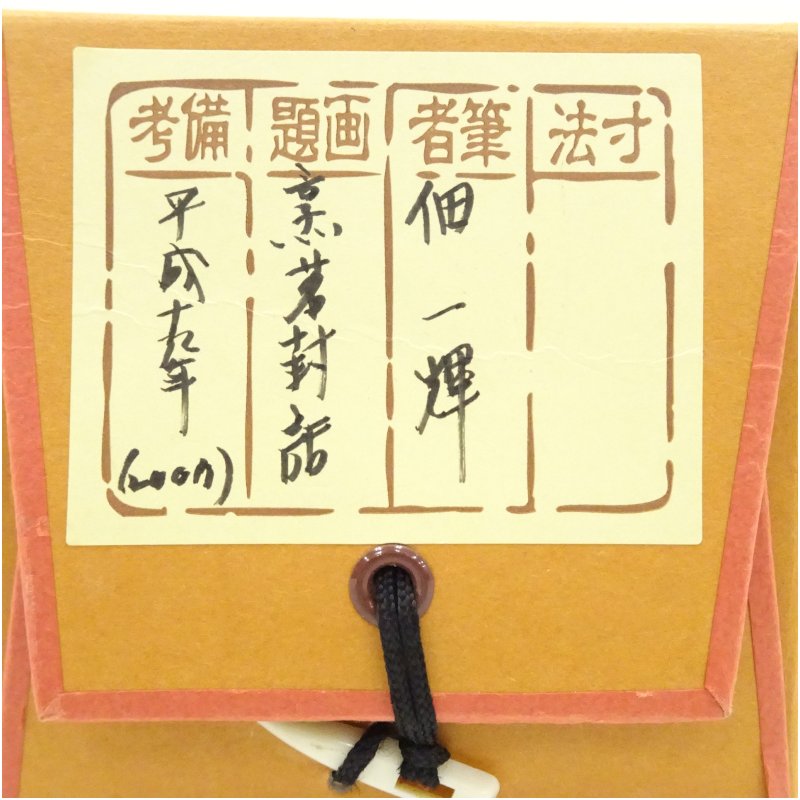 寸法
筆者
佃一輝
画題
烹茗
備考
平成十九年
(2007)